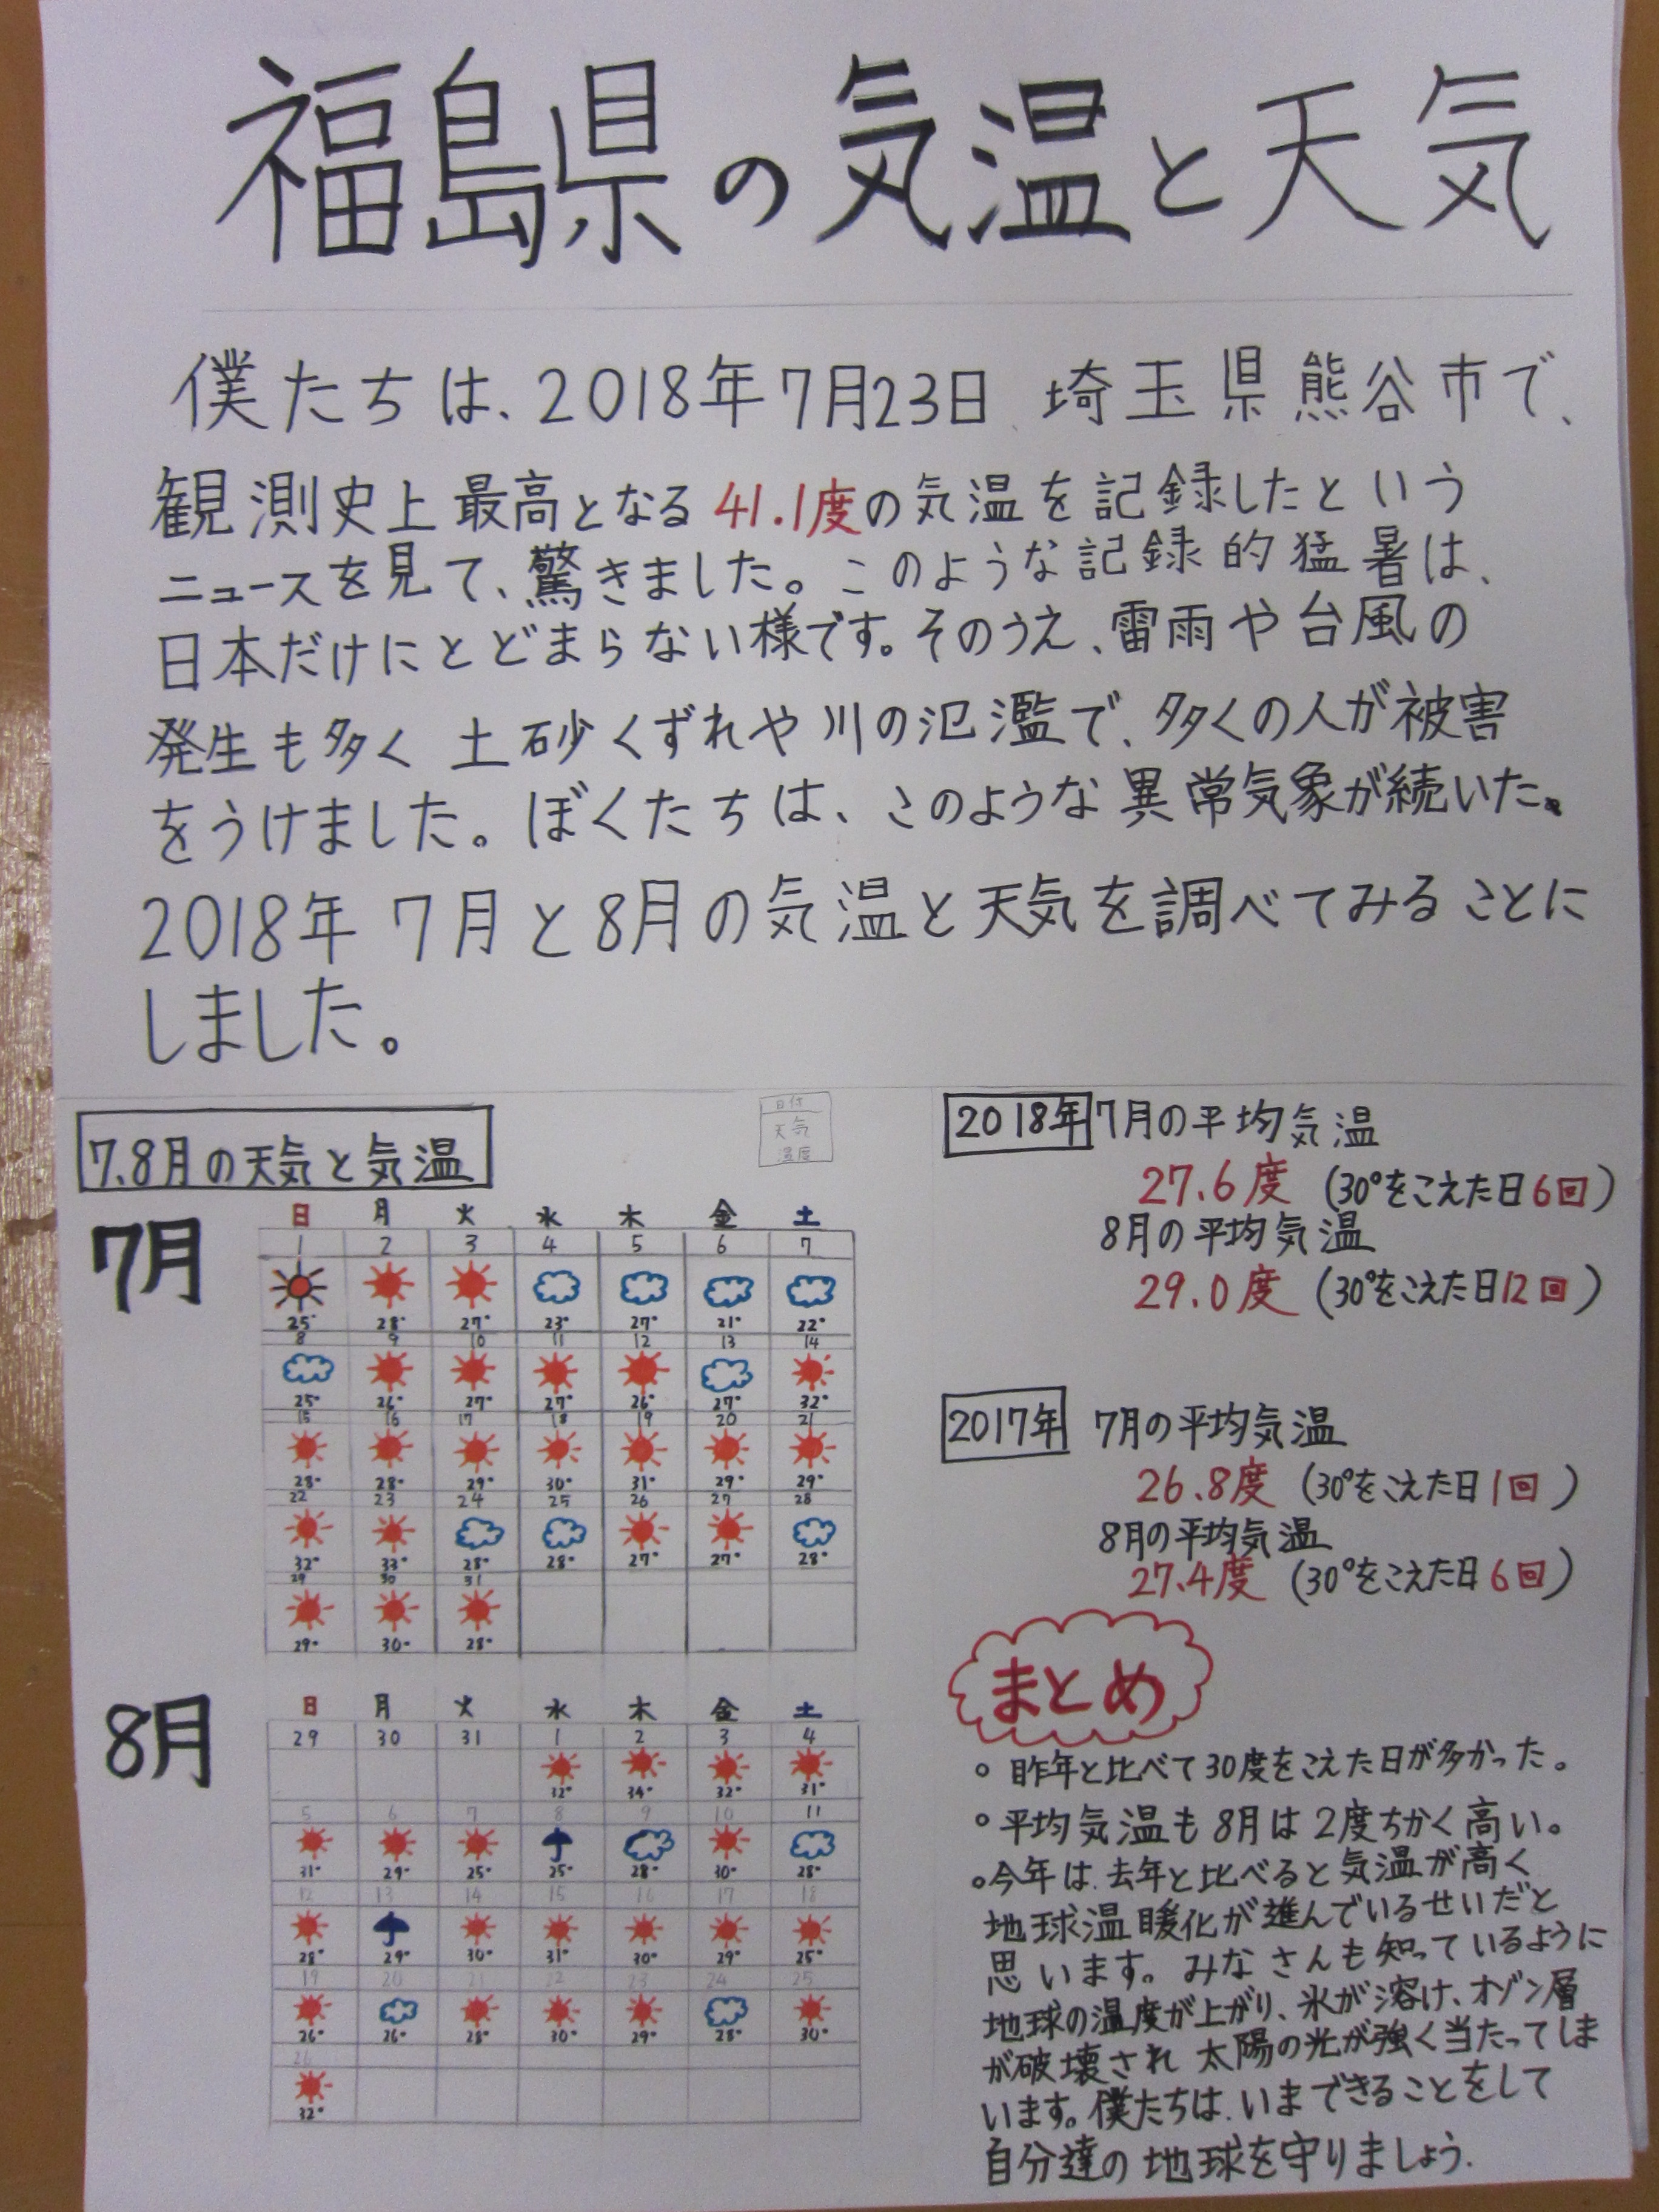 福島県の気温と天気
僕たちは、2018年7月23日、埼玉県熊谷市で、
観測史上最高となる41.1度の気温を記録したという
ニュースを見て、驚きました。このような記録的猛暑は、
日本だけにとどまらない様です。そのうえ、雷雨や台風の
発生も多く 土砂くずれや川の氾濫で、多くの人が被害
をうけました。ぼくたちは、このような異常気象が続いた。
2018年 7月と8月の気温と天気を調べてみることに
しました。
7.8月の天気と気温
日付
天気
温度
7月
日 月 火 水 木 金 土
1 2 3 4 5 6 7
25° 28° 27° 23° 27° 21° 22°
8 9 10 11 12 13 14
25° 26° 27° 27° 26° 27° 32°
15 16 17 18 19 20 21
28° 28° 29° 30° 31° 29° 29°
22 23 24 25 26 27 28
32° 33° 28° 28° 27° 27° 28°
29 30 31
29° 30° 28°
8月
日 月 火 水 木 金 土
29 30 31 1 2 3 4
32° 34° 32° 31°
5 6 7 8 9 10 11
31° 29° 25° 25° 28° 30° 28°
12 13 14 15 16 17 18
28° 29° 30° 31° 30° 29° 25°
19 20 21 22 23 24 25
26° 26° 28° 30° 29° 28° 30°
26
32°
2018年 7月の平均気温
27.6度 (30°をこえた日6回)
8月の平均気温
29.0度 (30°をこえた日12回)
2017年 7月の平均気温
26.8度 (30°をこえた日1回)
8月の平均気温
27.4度 (30°をこえた日6回)
まとめ
○ 昨年と比べて30度をこえた日が多かった。
○平均気温も8月は2度ちかく高い。
○今年は、去年と比べると気温が高く
地球温暖化が進んでいるせいだと
思います。みなさんも知っているように
地球の温度が上がり、氷が溶け、オゾン層
が破壊され 太陽の光が強く当たってしま
います。僕たちは、いまできることをして
自分達の地球を守りましょう.